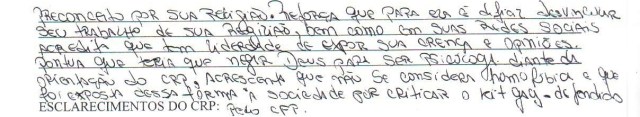 PRECONCEITO POR SUA RELIGIÃO. REFORÇA QUE PARA ELA É DIFICIL DESVINCULAR
SEU TRABALHO DE SUA RELIGIÃO, BEM COMO EM SUAS REDES SOCIAIS
ACREDITA QUE TEM LIBERDADE DE EXPOR SUA CRENÇA E OPINIÕES.
PONTUA QUE TERIA QUE NEGAR DEUS PARA SER PSICOLOGA DIANTE DA
ORIENTAÇÃO DO CRP. ACRESCENTA QUE NÃO SE CONSIDERA HOMOFOBICA E QUE
FOI EXPOSTA DESSA FORMA A SOCIEDADE POR CRITICAR O KIT GAY - DEFENDIDO
ESCLARECIMENTOS DO CRP: PELO CFP.